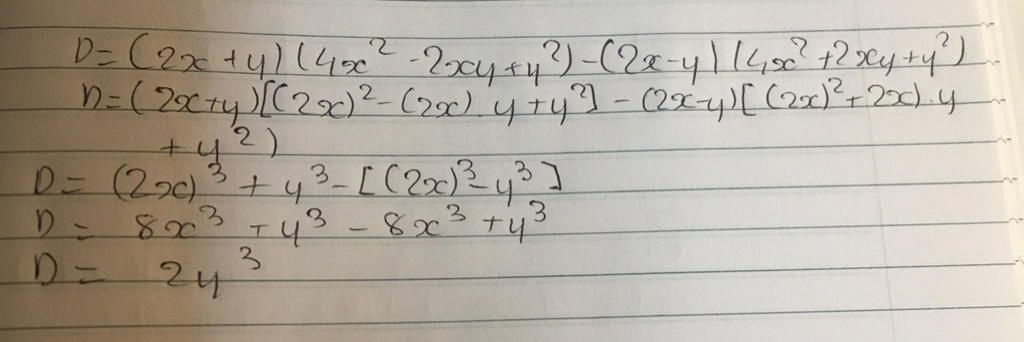 D=(2x+y)(4x²-2xy+y²)-(2x-y)(4x²+2xy+y²)
D=(2x+y)[(2x)²-(2x).y+y²]-(2x-y)[(2x)²+2x).y
+y²)
D=(2x)³+y³-[(2x)³-y³]
D=8x³+y³-8x³+y³
D=2y³